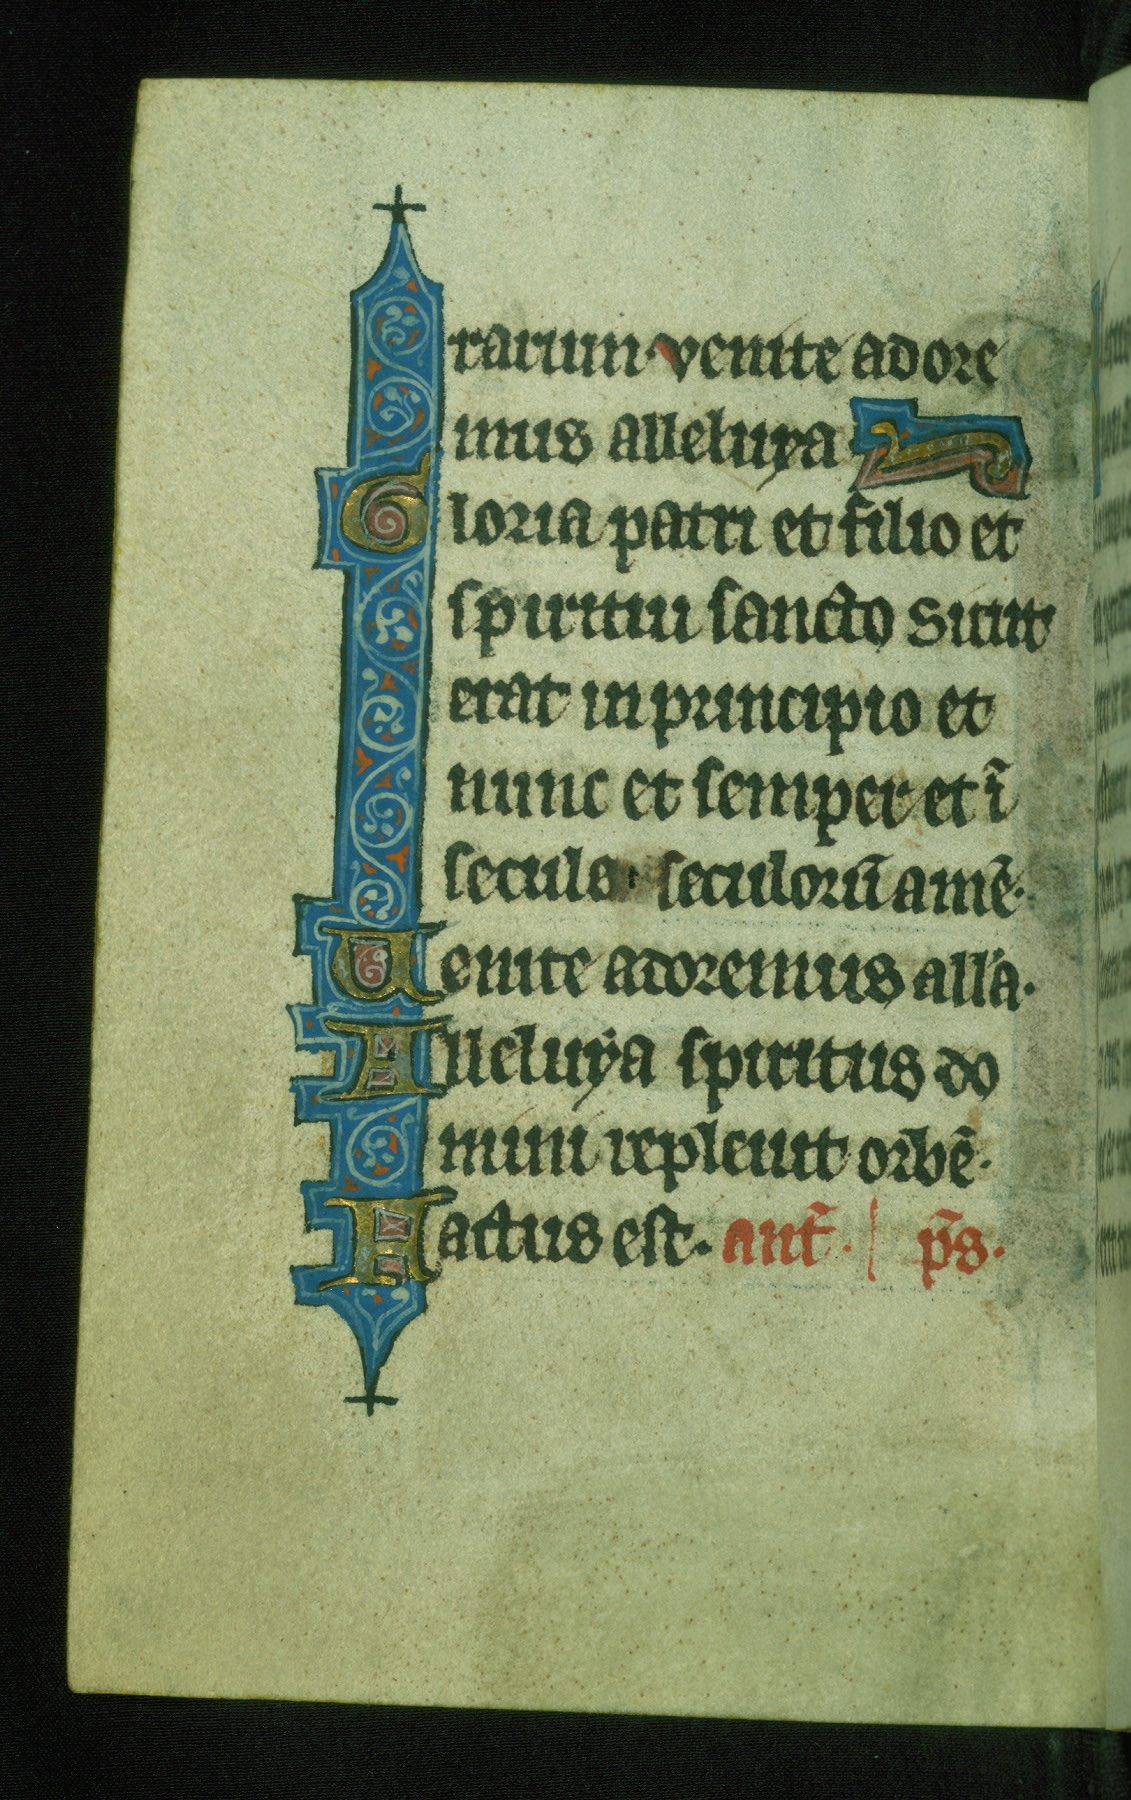 rarum venite adore
mus alleluya
Gloria patri et filio et
spiritui sancto Sicut
erat in principio et
nunc et semper et ī
secula seculorū amē.
Uenite adoremus all'a.
Alleluya spiritus do
mini repleuit orbē.
Factus est. ant̄. p̄s.